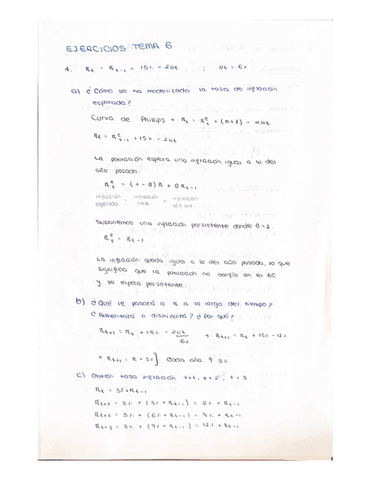 EJERCICIOS TEMA 6
1. πt - πt-1 = 15% - 2ut ; ut = 6%
a) ¿ Cómo se ha modelizado la tasa de inflación
esperada?
Curva de Philips → πt = πᵉt + (m+z) - αut
πt = πᵉt-1 + 15% - 2ut
La población espera una inflación igual a la del
año pasado.
πᵉt = (1 - θ) π + θ πt-1
inflación esperada inflación cte inflación
Suponemos una inflación persistente donde θ=1.
πᵉt = πt-1
La inflación queda igual a la del año pasado, lo que
significa que la población no confía en el BC
y se espera persistente.
b) ¿Qué le pasará a π a lo largo del tiempo?
¿Aumentará o disminuirá? ¿Por qué?
πt+1 = πt + 15% - 2ut → πt+1 = πt + 15% - 12%
6%
πt+1 = π + 3%] cada año 3%
c) Obtén tasa inflación t+1, t+2, t+3.
πt = 3% + πt-1
πt+1 = 3% + (3% + πt-1) = 6% + πt-1
πt+2 = 3% + (6% + πt-1) = 9% + πt-1
πt+3 = 3% + (9% + πt-1) = 12% + πt-1